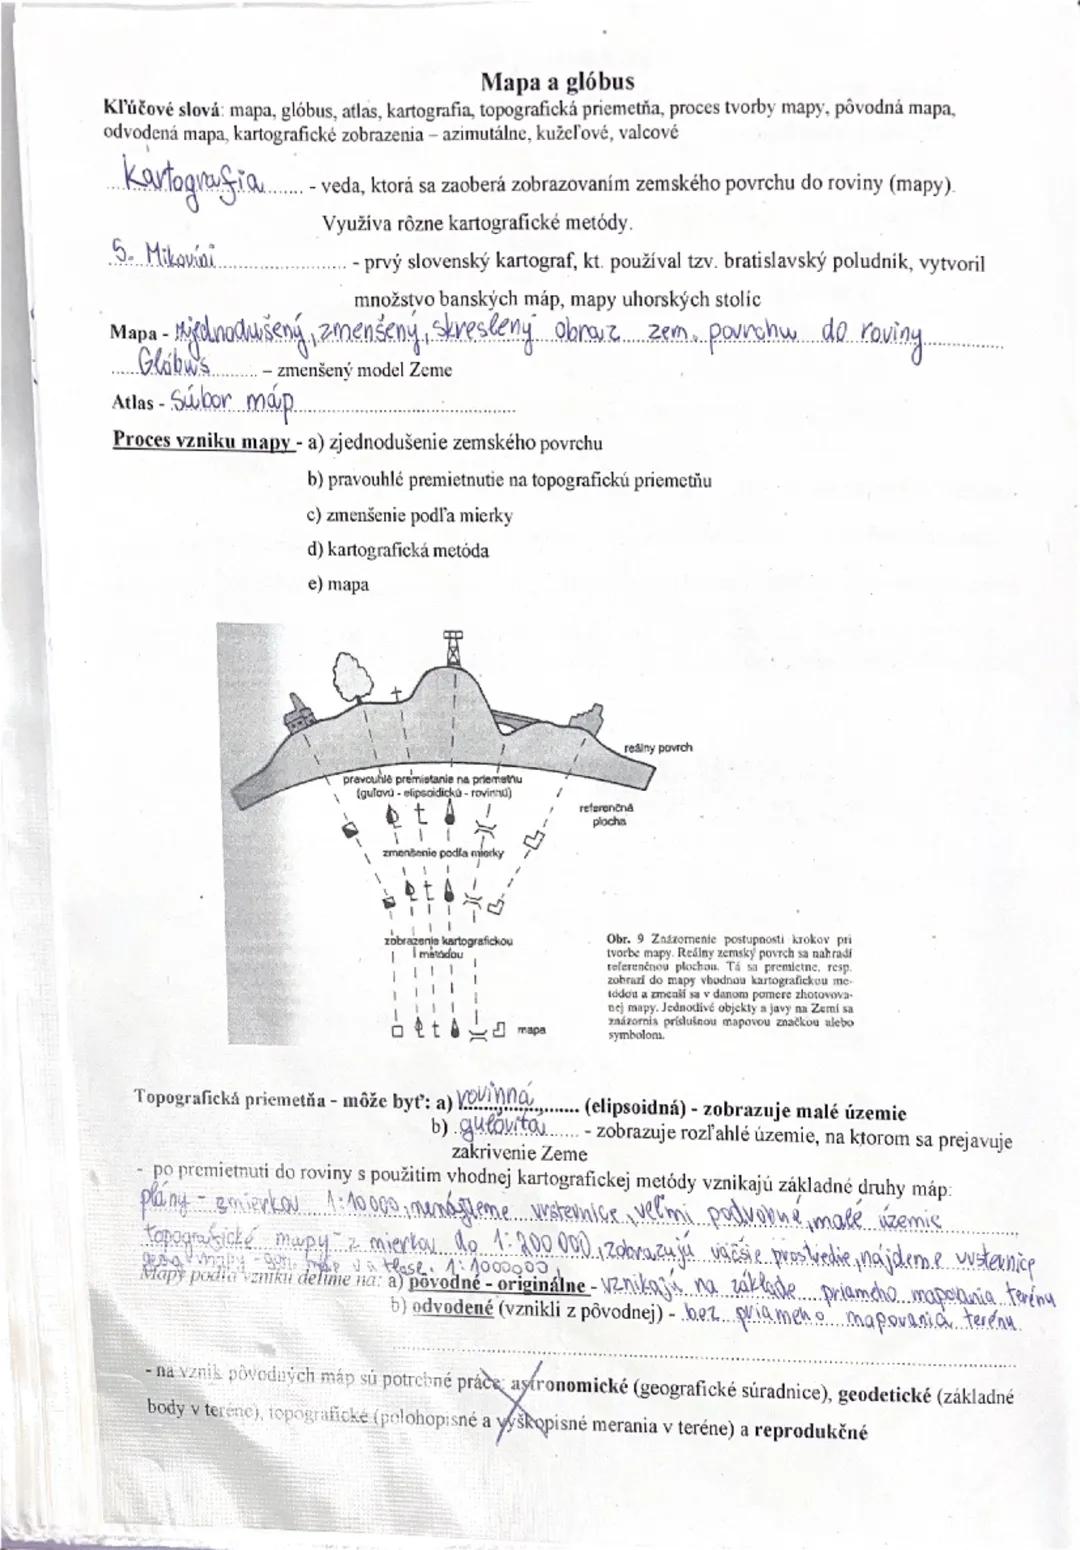 Mapa a glóbus
Kľúčové slová: mapa, glóbus, atlas, kartografia, topografická priemetňa, proces tvorby mapy, pôvodná mapa,
odvodená mapa, kartografické zobrazenia – azimutálne, kužeľové, valcové
Kartografia - veda, ktorá sa zaoberá zobrazovaním zemského povrchu do roviny (mapy).
Využíva rôzne kartografické metódy.
S. Mikovíni - prvý slovenský kartograf, kt. používal tzv. bratislavský poludník, vytvoril
množstvo banských máp, mapy uhorských stolíc
Mapa - zjednodušený, zmenšený, skreslený obraz zem. povrchu do roviny
Glóbus – zmenšený model Zeme
Atlas - Súbor máp
Proces vzniku mapy - a) zjednodušenie zemského povrchu
b) pravouhlé premietnutie na topografickú priemetňu
c) zmenšenie podľa mierky
d) kartografická metóda
e) mapa
reálny povrch
pravouhlé premietanie na priemetňu
(guľovú - elipsoidickú - rovinnú)
referenčná
plocha
zmenšenie podľa mierky
zobrazenie kartografickou
metódou
mapa
Obr. 9 Znázornenie postupnosti krokov pri
tvorbe mapy. Reálny zemský povrch sa nahradí
referenčnou plochou. Tá sa premietne, resp.
zobrazí do mapy vhodnou kartografickou me-
tódou a zmenší sa v danom pomere zhotovova-
nej mapy. Jednotlivé objekty a javy na Zemi sa
znázornia príslušnou mapovou značkou alebo
symbolom.
Topografická priemetňa - môže byť: a) rovinná (elipsoidná) - zobrazuje malé územie
b) guľovitá - zobrazuje rozľahlé územie, na ktorom sa prejavuje
zakrivenie Zeme
- po premietnutí do roviny s použitím vhodnej kartografickej metódy vznikajú základné druhy máp:
plány - mierkou 1:10 000, nenájdeme vrstevnice, veľmi podrobné, malé územie
topografické mapy - z mierkou do 1:200 000, zobrazujú väčšie prostredie, nájdeme vrstevnice
1:1000000
Mapy podľa vzniku delíme na: a) pôvodné - originálne - vznikajú na základe priameho mapovania terénu
b) odvodené (vznikli z pôvodnej) - bez priameho mapovania terénu
- na vznik pôvodných máp sú potrebné práce: astronomické (geografické súradnice), geodetické (základné
body v teréne), topografické (polohopisné a výškopisné merania v teréne) a reprodukčné